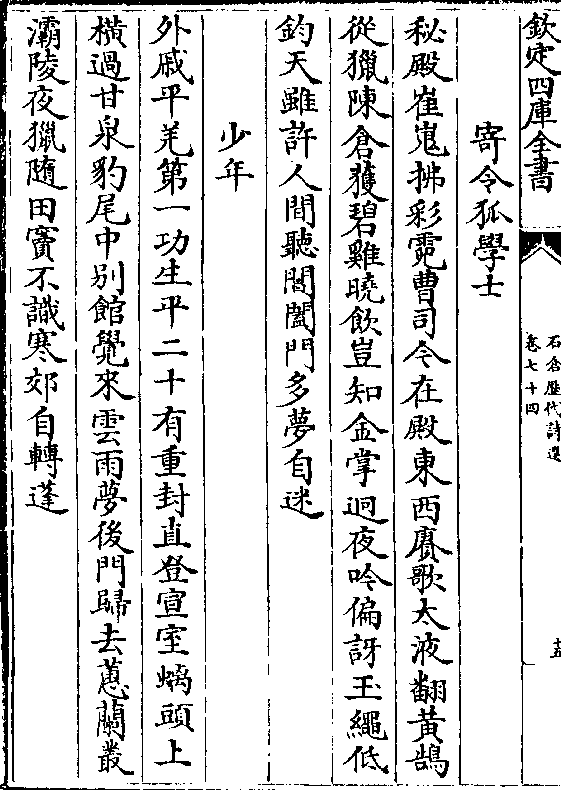 欽定四庫全書
石倉歷代詩選
卷七十四
十五
寄令狐學士
秘殿崔嵬拂彩霓曹司令在殿東西賡歌太液翻黃鵠
從獵陳倉獲碧雞曉飲豈知金掌迥夜吟偏訝玉繩低
鈞天雖許人間聽閶闔門多夢自迷
少年
外戚平羌第一功生平二十有重封直登宣室螭頭上
橫過甘泉豹尾中別館覺來雲雨夢後門歸去蕙蘭叢
灞陵夜獵隨田竇不識寒郊自轉蓬